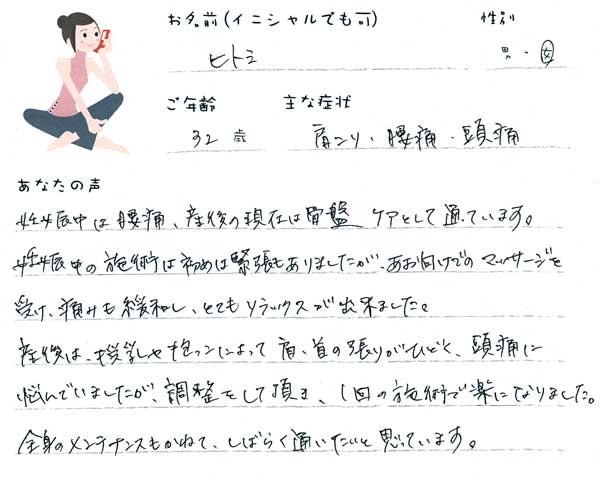 お名前(イニシャルでも可) 性別
ヒトミ 男・女
ご年齢 主な症状
32歳 肩コリ・腰痛・頭痛
あなたの声
妊娠中は腰痛、産後の現在は骨盤ケアとして通っています。
妊娠中の施術は初めは緊張もありましたが、あお向けでのマッサージを
受け、痛みも緩和し、とてもリラックスが出来ました。
産後は、授乳や抱っこによって肩、首の張りがひどく、頭痛に
悩んでいましたが、調整をして頂き、1回の施術で楽になりました。
全身のメンテナンスもかねて、しばらく通いたいと思っています。